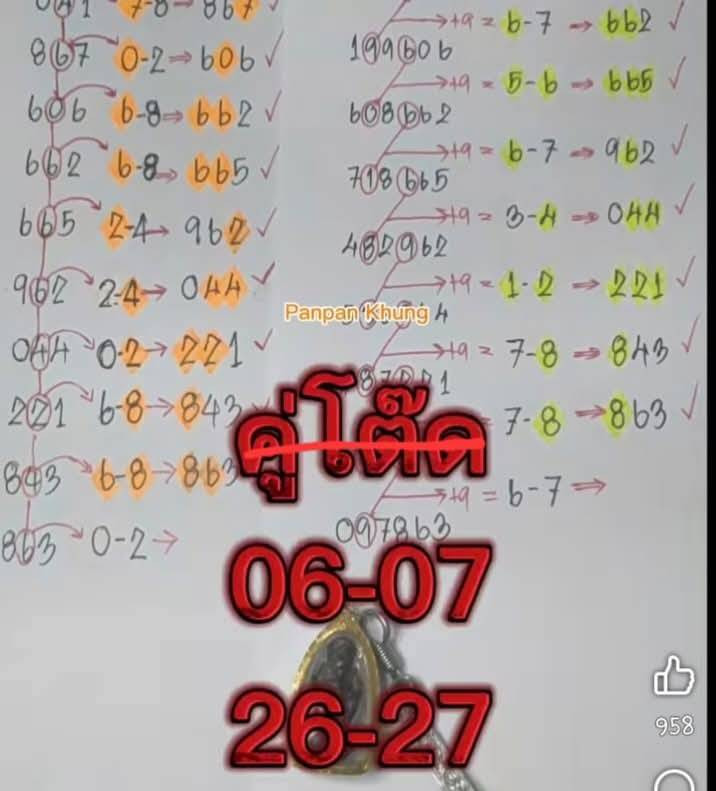 7-8 867
867 0-2 → 606 ✓
606 6-8 ⇒ 662 ✓
662 6-8 → 665 ✓
665 2-4 → 962 ✓
962 2-4 → 044 ✓
044 0-2 → 221 ✓
221 6-8 → 843
843 6-8 → 863
863 0-2 →
→ +9 = 6-7 → 662 ✓
199606
→ +9 = 5-6 → 665 ✓
608662
→ +9 = 6-7 → 962 ✓
718665
→ +9 = 3-4 ⇒ 044 ✓
482962
→ +9 = 1-2 ⇒ 221 ✓
Panpan Khung
4
→ +9 = 7-8 ⇒ 843 ✓
7-8 → 863 ✓
→ +9 = 6-7 ⇒
097863
คู่โต๊ด
06-07
26-27
958